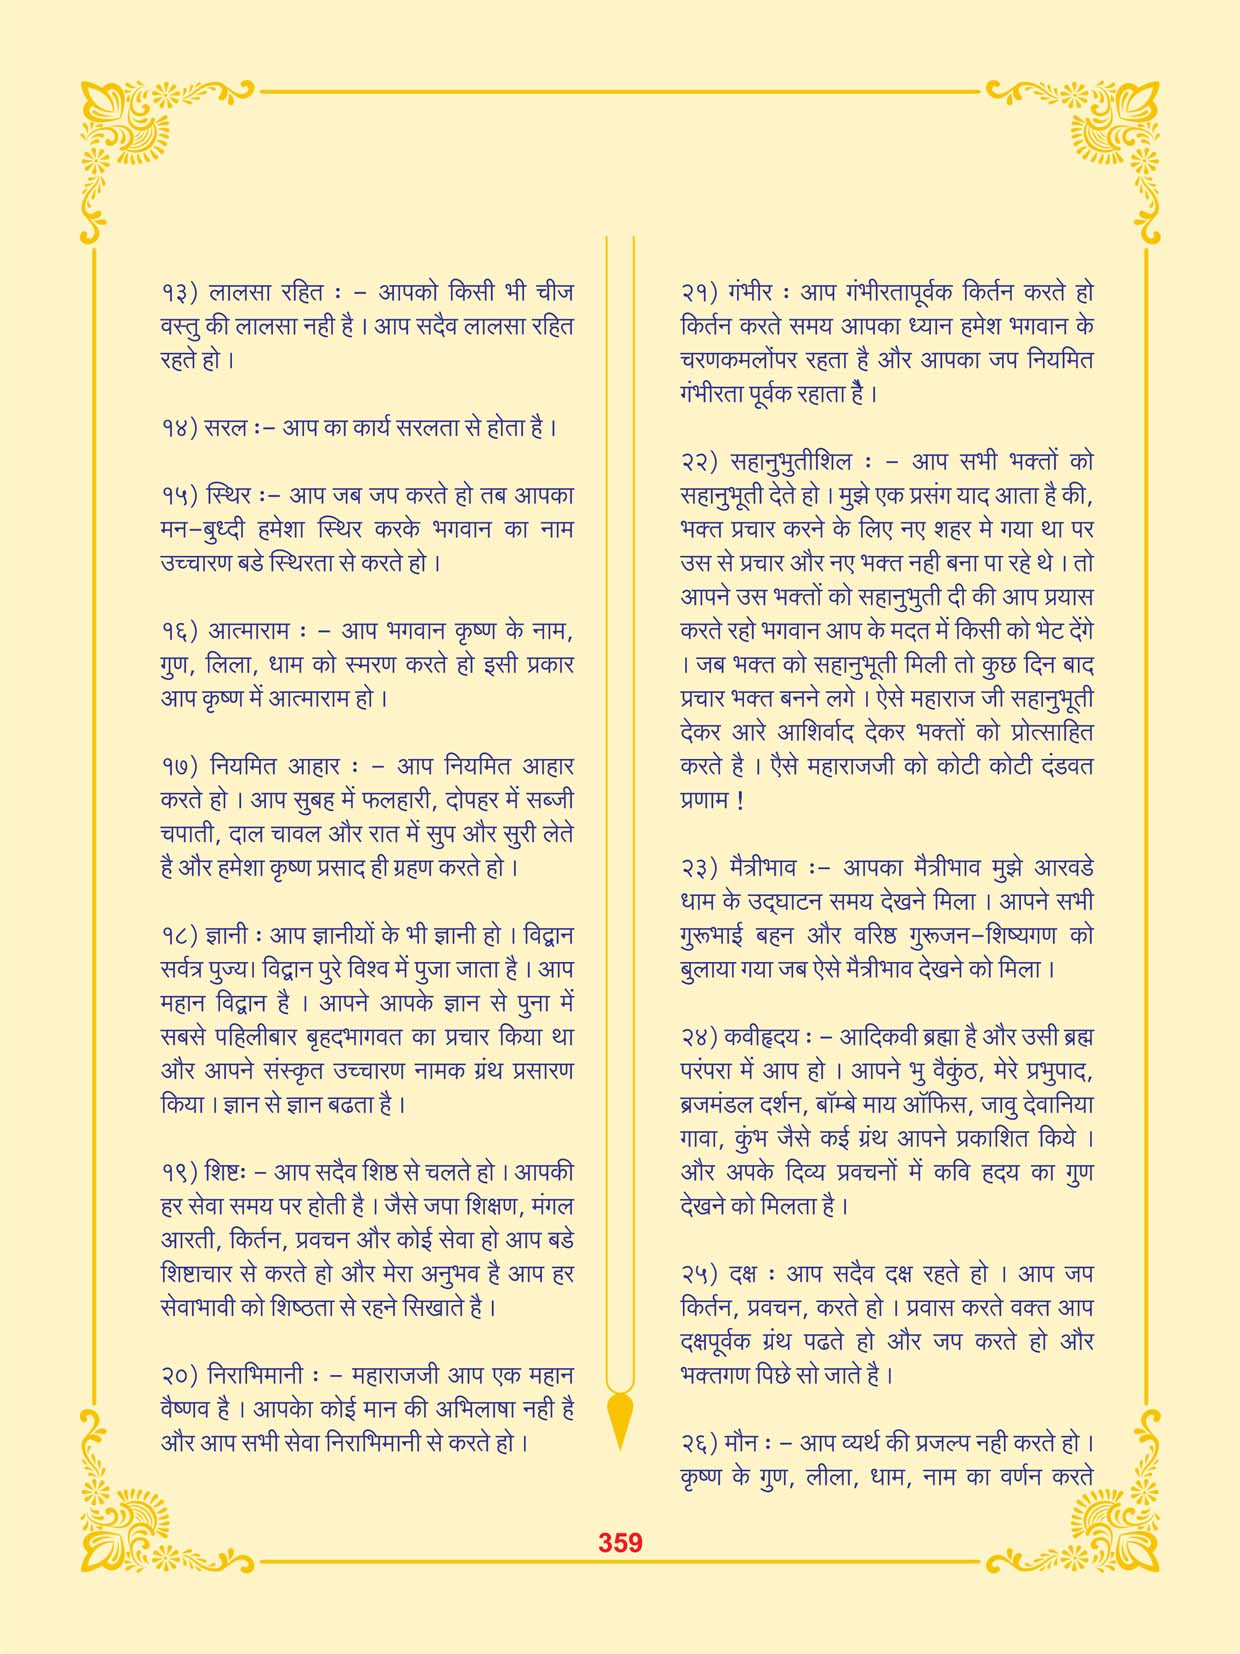 १३) लालसा रहित : – आपको किसी भी चीज
वस्तु की लालसा नही है । आप सदैव लालसा रहित
रहते हो ।
१४) सरल :– आप का कार्य सरलता से होता है ।
१५) स्थिर :– आप जब जप करते हो तब आपका
मन–बुध्दी हमेशा स्थिर करके भगवान का नाम
उच्चारण बडे स्थिरता से करते हो ।
१६) आत्माराम : – आप भगवान कृष्ण के नाम,
गुण, लिला, धाम को स्मरण करते हो इसी प्रकार
आप कृष्ण में आत्माराम हो ।
१७) नियमित आहार : – आप नियमित आहार
करते हो । आप सुबह में फलहारी, दोपहर में सब्जी
चपाती, दाल चावल और रात में सुप और सुरी लेते
है और हमेशा कृष्ण प्रसाद ही ग्रहण करते हो ।
१८) ज्ञानी : आप ज्ञानीयों के भी ज्ञानी हो । विद्वान
सर्वत्र पुज्य। विद्वान पुरे विश्व में पुजा जाता है । आप
महान विद्वान है । आपने आपके ज्ञान से पुना में
सबसे पहिलीबार बृहदभागवत का प्रचार किया था
और आपने संस्कृत उच्चारण नामक ग्रंथ प्रसारण
किया । ज्ञान से ज्ञान बढता है ।
१९) शिष्टः – आप सदैव शिष्ठ से चलते हो । आपकी
हर सेवा समय पर होती है । जैसे जपा शिक्षण, मंगल
आरती, किर्तन, प्रवचन और कोई सेवा हो आप बडे
शिष्टाचार से करते हो और मेरा अनुभव है आप हर
सेवाभावी को शिष्ठता से रहने सिखाते है ।
२०) निराभिमानी : – महाराजजी आप एक महान
वैष्णव है । आपको कोई मान की अभिलाषा नही है
और आप सभी सेवा निराभिमानी से करते हो ।
२१) गंभीर : आप गंभीरतापूर्वक किर्तन करते हो
किर्तन करते समय आपका ध्यान हमेश भगवान के
चरणकमलोंपर रहता है और आपका जप नियमित
गंभीरता पूर्वक रहाता है ।
२२) सहानुभुतीशिल : – आप सभी भक्तों को
सहानुभूती देते हो । मुझे एक प्रसंग याद आता है की,
भक्त प्रचार करने के लिए नए शहर मे गया था पर
उस से प्रचार और नए भक्त नही बना पा रहे थे । तो
आपने उस भक्तों को सहानुभुती दी की आप प्रयास
करते रहो भगवान आप के मदत में किसी को भेट देंगे
। जब भक्त को सहानुभूती मिली तो कुछ दिन बाद
प्रचार भक्त बनने लगे । ऐसे महाराज जी सहानुभूती
देकर आरे आशिर्वाद देकर भक्तों को प्रोत्साहित
करते है । एैसे महाराजजी को कोटी कोटी दंडवत
प्रणाम !
२३) मैत्रीभाव :– आपका मैत्रीभाव मुझे आरवडे
धाम के उद्‌घाटन समय देखने मिला । आपने सभी
गुरूभाई बहन और वरिष्ठ गुरूजन–शिष्यगण को
बुलाया गया जब ऐसे मैत्रीभाव देखने को मिला ।
२४) कवीहृदय : – आदिकवी ब्रह्मा है और उसी ब्रह्म
परंपरा में आप हो । आपने भु वैकुंठ, मेरे प्रभुपाद,
ब्रजमंडल दर्शन, बॉम्बे माय ऑफिस, जावु देवानिया
गावा, कुंभ जैसे कई ग्रंथ आपने प्रकाशित किये ।
और अपके दिव्य प्रवचनों में कवि हदय का गुण
देखने को मिलता है ।
२५) दक्ष : आप सदैव दक्ष रहते हो । आप जप
किर्तन, प्रवचन, करते हो । प्रवास करते वक्त आप
दक्षपूर्वक ग्रंथ पढते हो और जप करते हो और
भक्तगण पिछे सो जाते है ।
२६) मौन : – आप व्यर्थ की प्रजल्प नही करते हो ।
कृष्ण के गुण, लीला, धाम, नाम का वर्णन करते
359